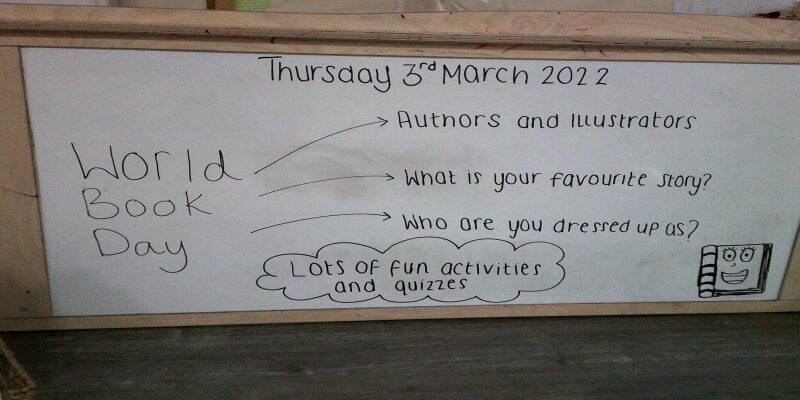 Thursday 3rd March 2022
World
Book
Day
Authors and Illustrators
What is your favourite story?
Who are you dressed up as?
Lots of fun activities
and quizzes